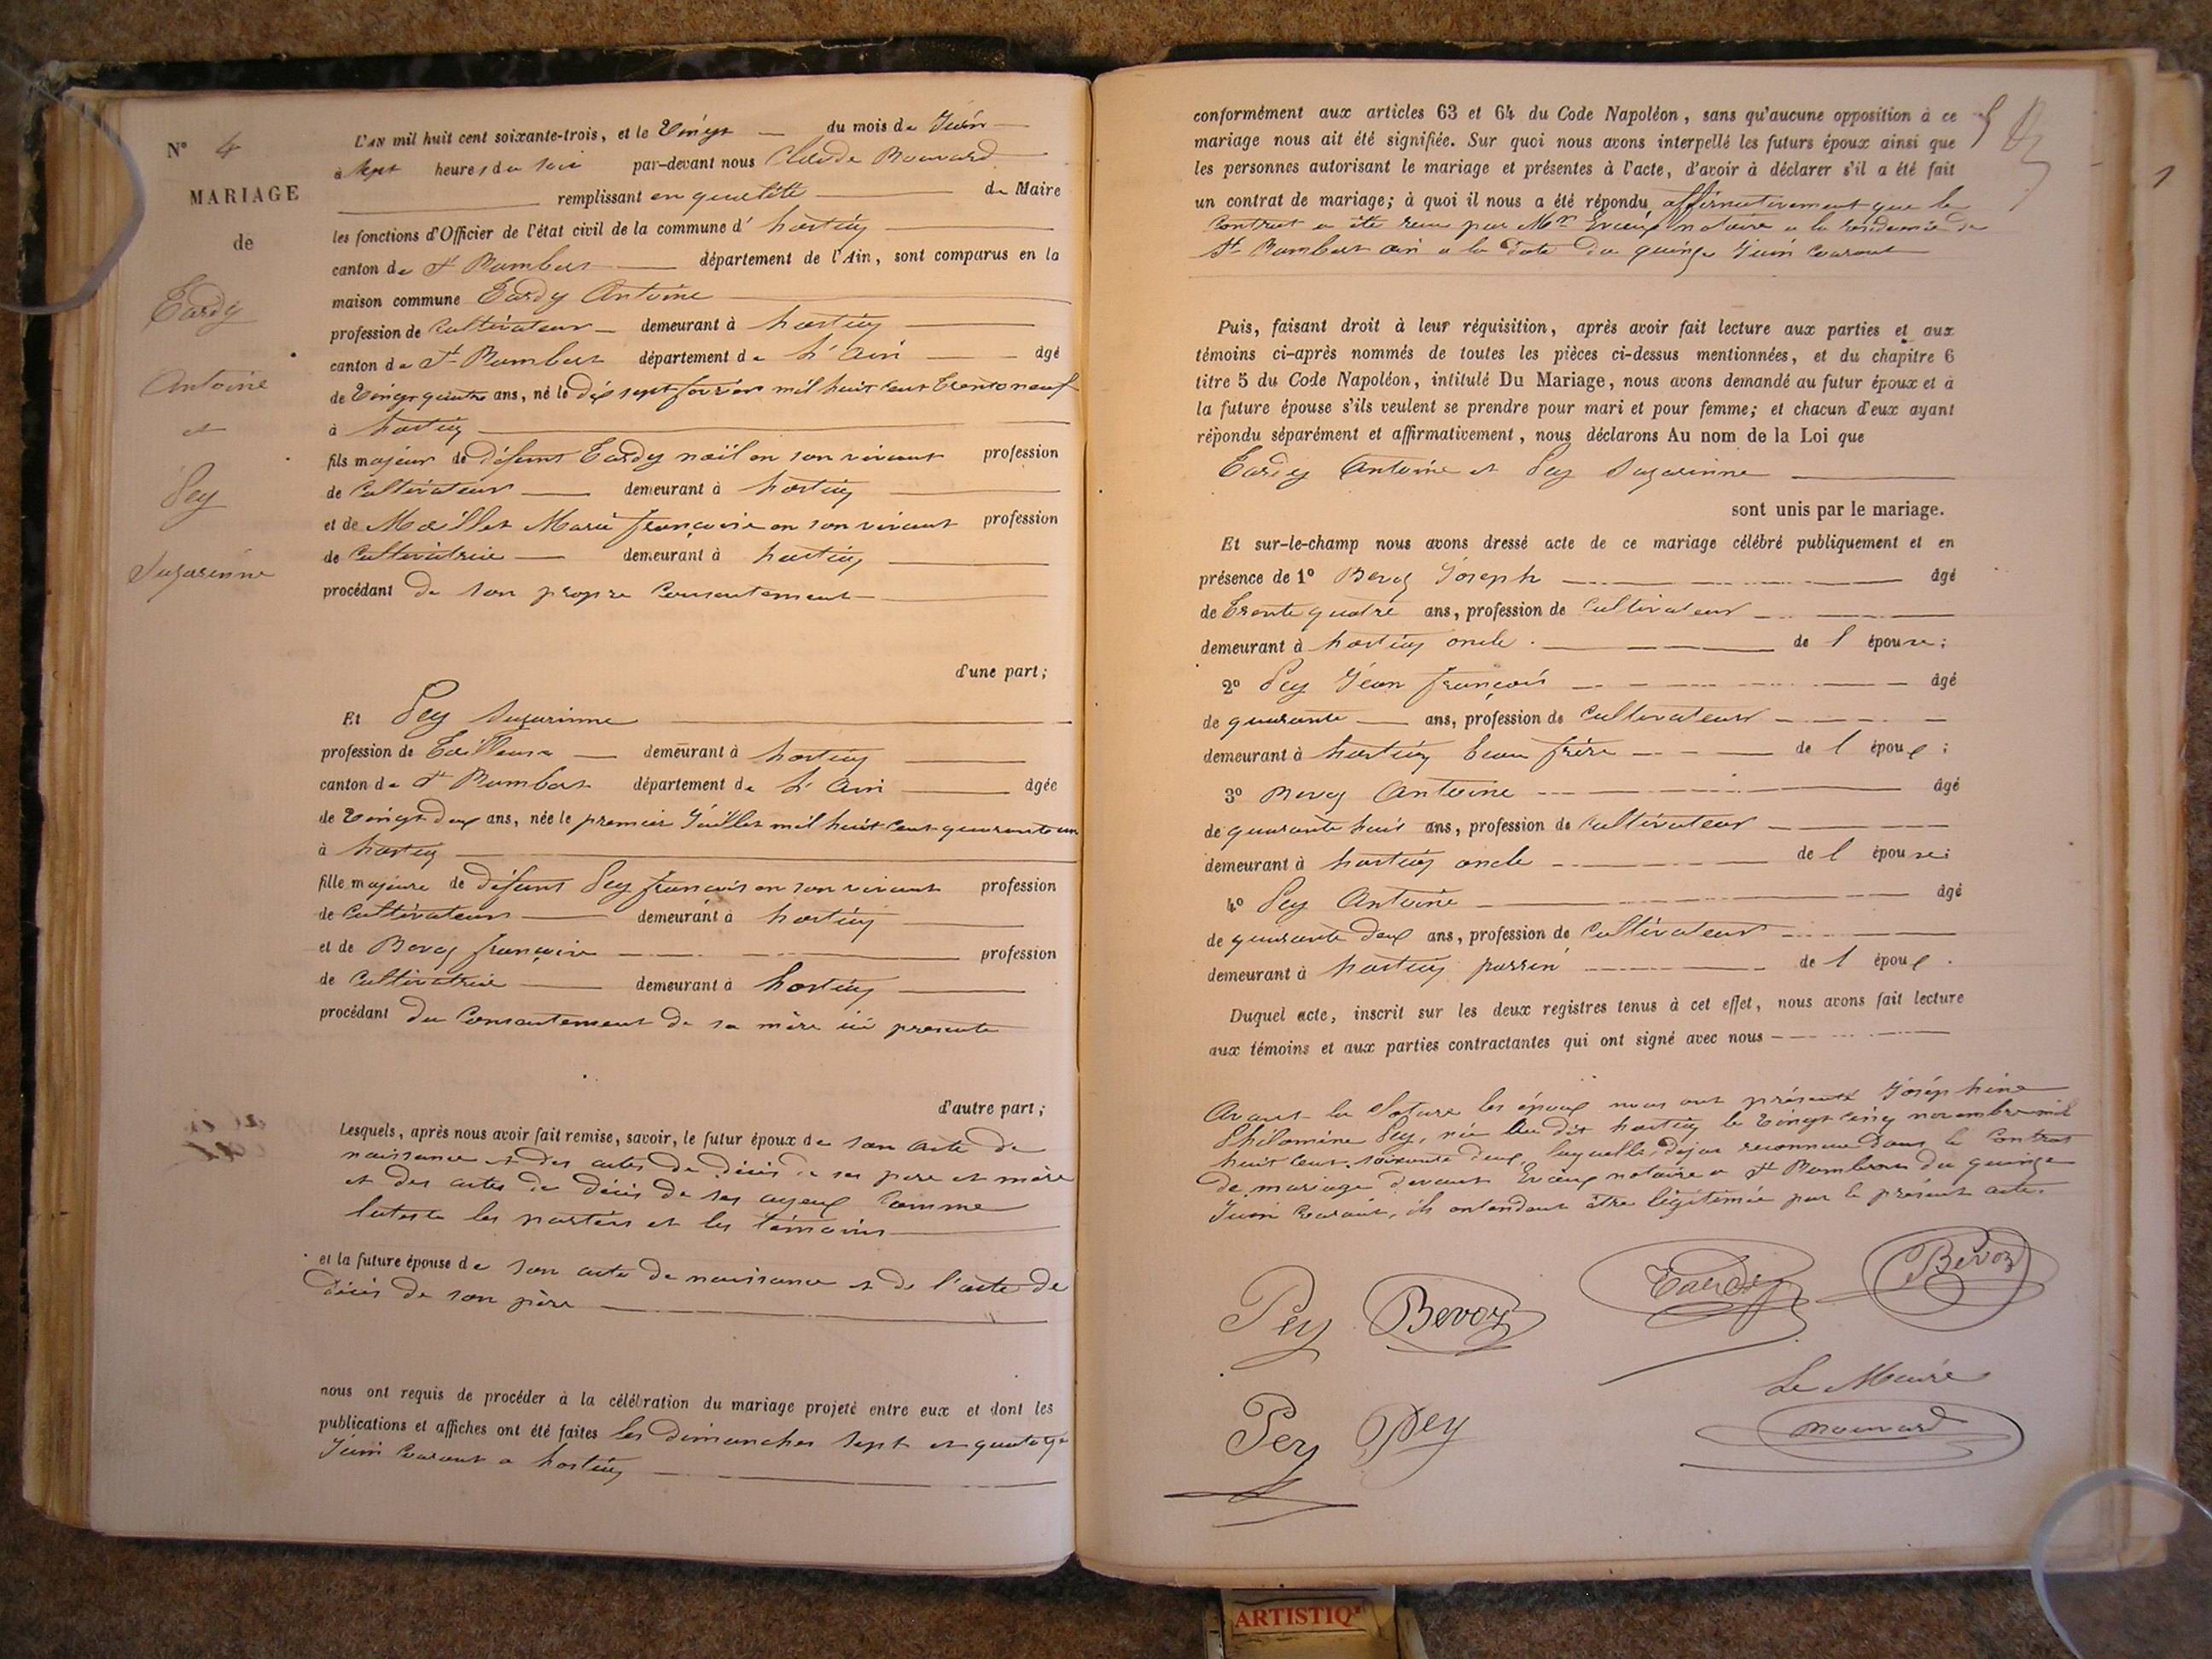 N° 4
MARIAGE
de
Tardy
Antoine
et
Pey
Suzarinne
L'AN mil huit cent soixante-trois, et le Vingt du mois de Juin
à Sept heures du soir par-devant nous Claude Bouvard
remplissant en qualité de Maire
les fonctions d'Officier de l'état civil de la commune d' hostiaz
canton de St Rambert département de l'Ain, sont comparus en la
maison commune Tardy Antoine
profession de Cultivateur demeurant à hostiaz
canton de St Rambert département de L'Ain âgé
de Vingt quatre ans, né le dix sept février mil huit cent trente neuf
à hostiaz
fils majeur de défunt Tardy noël en son vivant profession
de Cultivateur demeurant à hostiaz
et de Maillet Marie françoise en son vivant profession
de Cultivatrice demeurant à hostiaz
procédant de son propre Consentement
d'une part;
Et Pey Suzarinne
profession de Tailleuse demeurant à hostiaz
canton de St Rambert département de L'Ain âgée
de Vingt deux ans, née le premier Juillet mil huit cent quarante un
à hostiaz
fille majeure de défunt Pey françois en son vivant profession
de Cultivateur demeurant à hostiaz
et de Bevoz françoise profession
de Cultivatrice demeurant à hostiaz
procédant du Consentement de sa mère ici présente
d'autre part;
Lesquels, après nous avoir fait remise, savoir, le futur époux de son acte de
naissance et des actes de décès de ses père et mère
et des actes de décès de ses ayeux Comme
l'atteste les parties et les témoins
et la future épouse de son acte de naissance et de l'acte de
décès de son père
nous ont requis de procéder à la célébration du mariage projeté entre eux et dont les
publications et affiches ont été faites les dimanches sept et quatorze
Juin Courant a hostiaz
conformément aux articles 63 et 64 du Code Napoléon, sans qu'aucune opposition à ce
mariage nous ait été signifiée. Sur quoi nous avons interpellé les futurs époux ainsi que
les personnes autorisant le mariage et présentes à l'acte, d'avoir à déclarer s'il a été fait
un contrat de mariage; à quoi il nous a été répondu affirmativement que le
Contrat a été reçu par Mr notaire a la résidence de
St Rambert ain a la date du quinze Juin Courant
Puis, faisant droit à leur réquisition, après avoir fait lecture aux parties et aux
témoins ci-après nommés de toutes les pièces ci-dessus mentionnées, et du chapitre 6
titre 5 du Code Napoléon, intitulé Du Mariage, nous avons demandé au futur époux et à
la future épouse s'ils veulent se prendre pour mari et pour femme; et chacun d'eux ayant
répondu séparément et affirmativement, nous déclarons Au nom de la Loi que
Tardy Antoine et Pey Suzarinne
sont unis par le mariage.
Et sur-le-champ nous avons dressé acte de ce mariage célébré publiquement et en
présence de 1° Bevoz Joseph âgé
de Trente quatre ans, profession de Cultivateur
demeurant à hostiaz oncle de l'épouse;
2° Pey Jean françois âgé
de quarante ans, profession de Cultivateur
demeurant à hostiaz beau frère de l'époux;
3° Bevoz Antoine âgé
de quarante huit ans, profession de Cultivateur
demeurant à hostiaz oncle de l'épouse;
4° Pey Antoine âgé
de quarante deux ans, profession de Cultivateur
demeurant à hostiaz parrin de l'époux.
Duquel acte, inscrit sur les deux registres tenus à cet effet, nous avons fait lecture
aux témoins et aux parties contractantes qui ont signé avec nous
Avant la Cloture les époux nous ont présenté Joséphine
Philomène Pey, née au dit hostiaz le Vingt cinq novembre mil
huit cent soixante deux, laquelle, déjà reconnue dans le Contrat
de mariage devant notaire a St Rambert du quinze
Juin Courant, ils entendent être légitimée par le présent acte.
Pey Bevoz Tardy Bevoz
Le Maire
Pey Pey Bouvard
ARTISTIQ